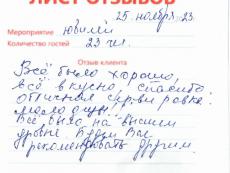 ЛИСТ ОТЗЫВОВ
25 ноября 23
Мероприятие юбилей
Количество гостей 23 чел.
Отзыв клиента
Всё было хорошо,
всё вкусно, спасибо
отличная сервировка.
Всё было на высшем
уровне. Будем Вас
рекомендовать другим.